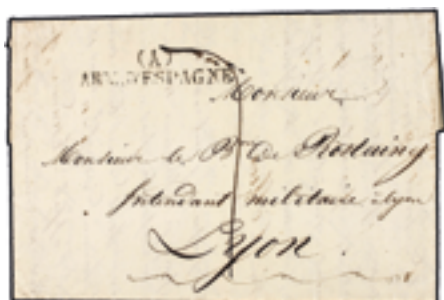 (A)
ARM. D'ESPAGNE
Monsieur
Monsieur le Bon de Rostaing
Intendant militaire à Lyon
Lyon.